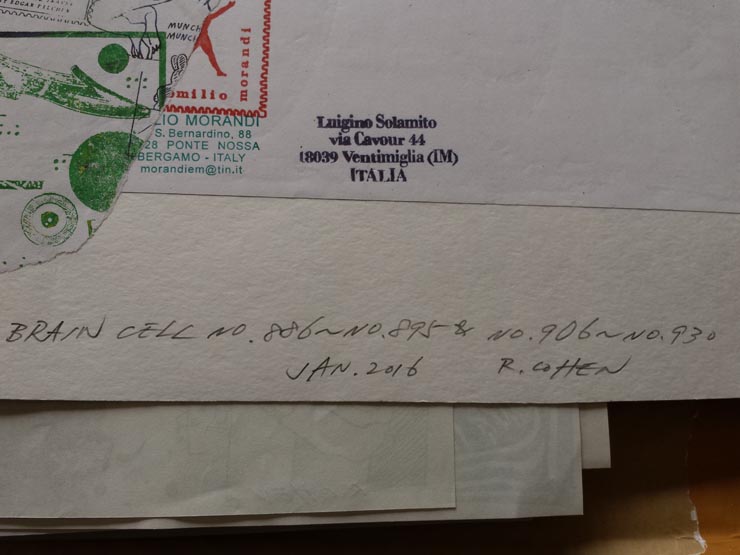 EDGAR
MUNCH
MUNCI
emilio
morandi
LIO MORANDI
S. Bernardino, 88
28 PONTE NOSSA
BERGAMO - ITALY
morandiem@tin.it
Luigino Solamito
via Cavour 44
18039 Ventimiglia (IM)
ITALIA
BRAIN CELL NO.886~NO.895 & NO.906~NO.930
JAN.2016 R.COHEN